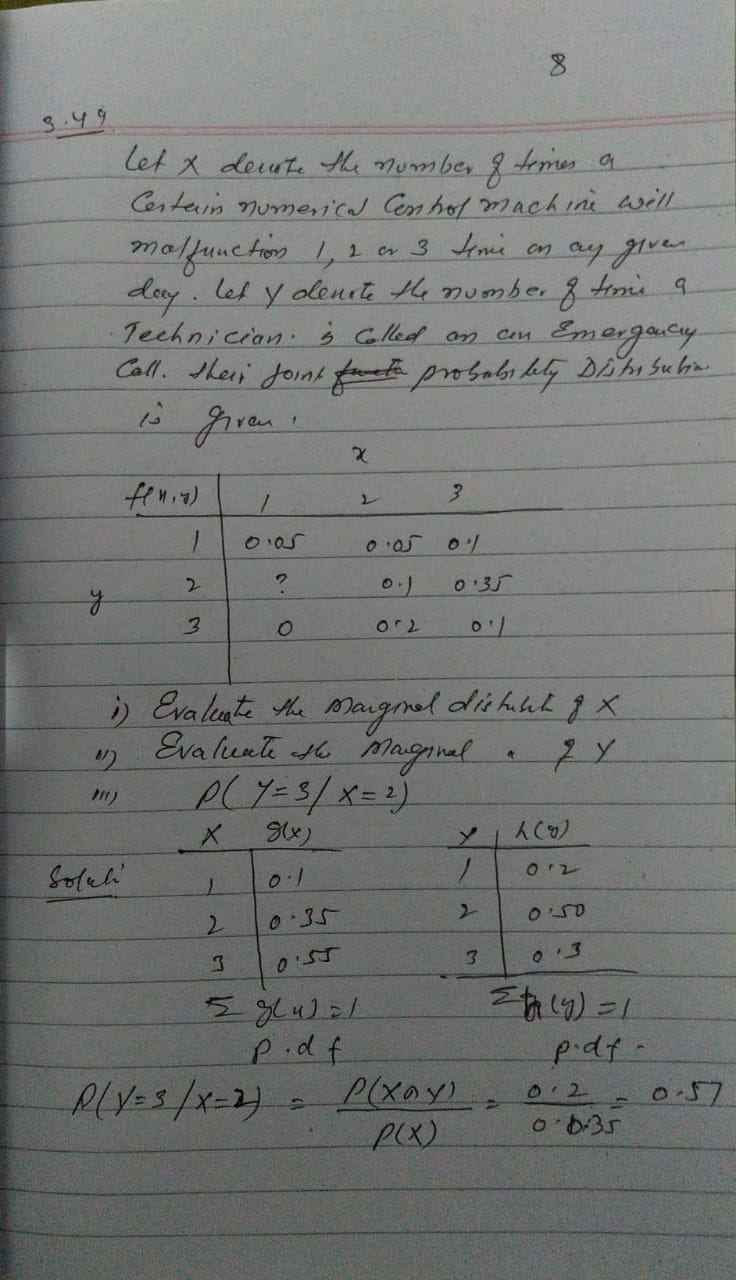 8
3.49
Let X denote the number of times a
Certain numerical Control machine will
malfunction 1, 2 or 3 time on any given
day. Let Y denote the number of time a
Technician is Called on an Emergency
Call. their joint probability Distribution
is given
x
f(x,y) 1 2 3
1 0.05 0.05 0.1
y 2 ? 0.1 0.35
3 0 0.2 0.1
i) Evaluate the Marginal distribut of X
ii) Evaluate the Marginal " of Y
iii) P(Y=3/X=2)
X g(x) Y h(y)
Soluti 1 0.1 1 0.2
2 0.35 2 0.50
3 0.55 3 0.3
Σ g(x) = 1 Σ h(y) = 1
p.d f p.d f -
P(Y=3/X=2) = P(X∩Y)/P(X) = 0.2/0.35 = 0.57